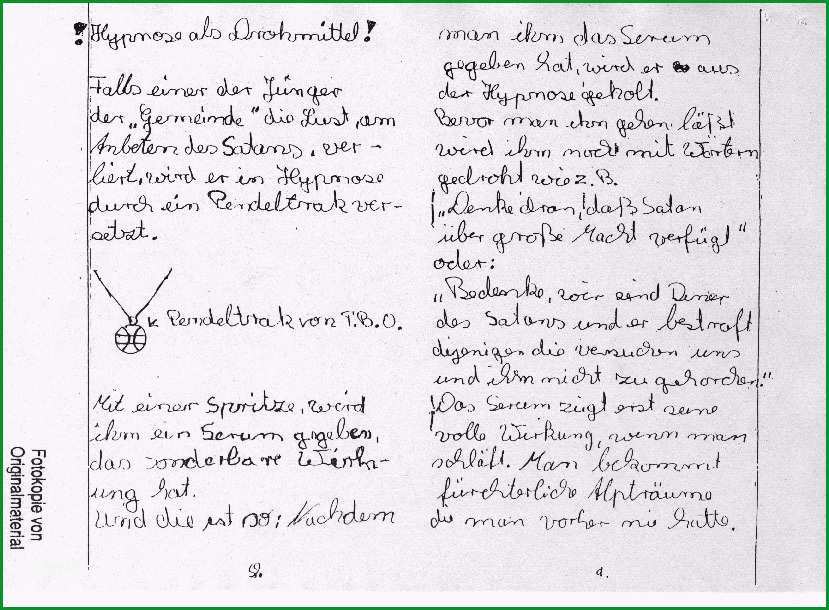 ! Hypnose als Drohmittel !
Falls einer der Jünger
der „Gemeinde“ die Lust, am
Anbeten des Satans, ver-
liert, wird er in Hypnose
durch ein Pendeltrak ver-
setzt.
Pendeltrak von T.B.O.
Mit einer Spritze, wird
ihm ein Serum gegeben,
das sonderbare Wirk-
ung hat.
Und die ist so: Nachdem
S.
man ihm das Serum
gegeben hat, wird er aus
der Hypnose geholt.
Bevor man ihn gehen läßt
wird ihm noch mit Wörtern
gedroht wie z.B.
! „Denke dran, daß Satan
über große Macht verfügt“
oder:
„Bedenke, wir sind Diner
des Satans und er bestraft
dijenigen die versuchen uns
und ihm nicht zu gehorchen.“
! Das Serum zeigt erst seine
volle Wirkung, wenn man
schläft. Man bekommt
fürchterliche Alpträume
die man vorher nie hatte.
Fotokopie von
Originalmaterial